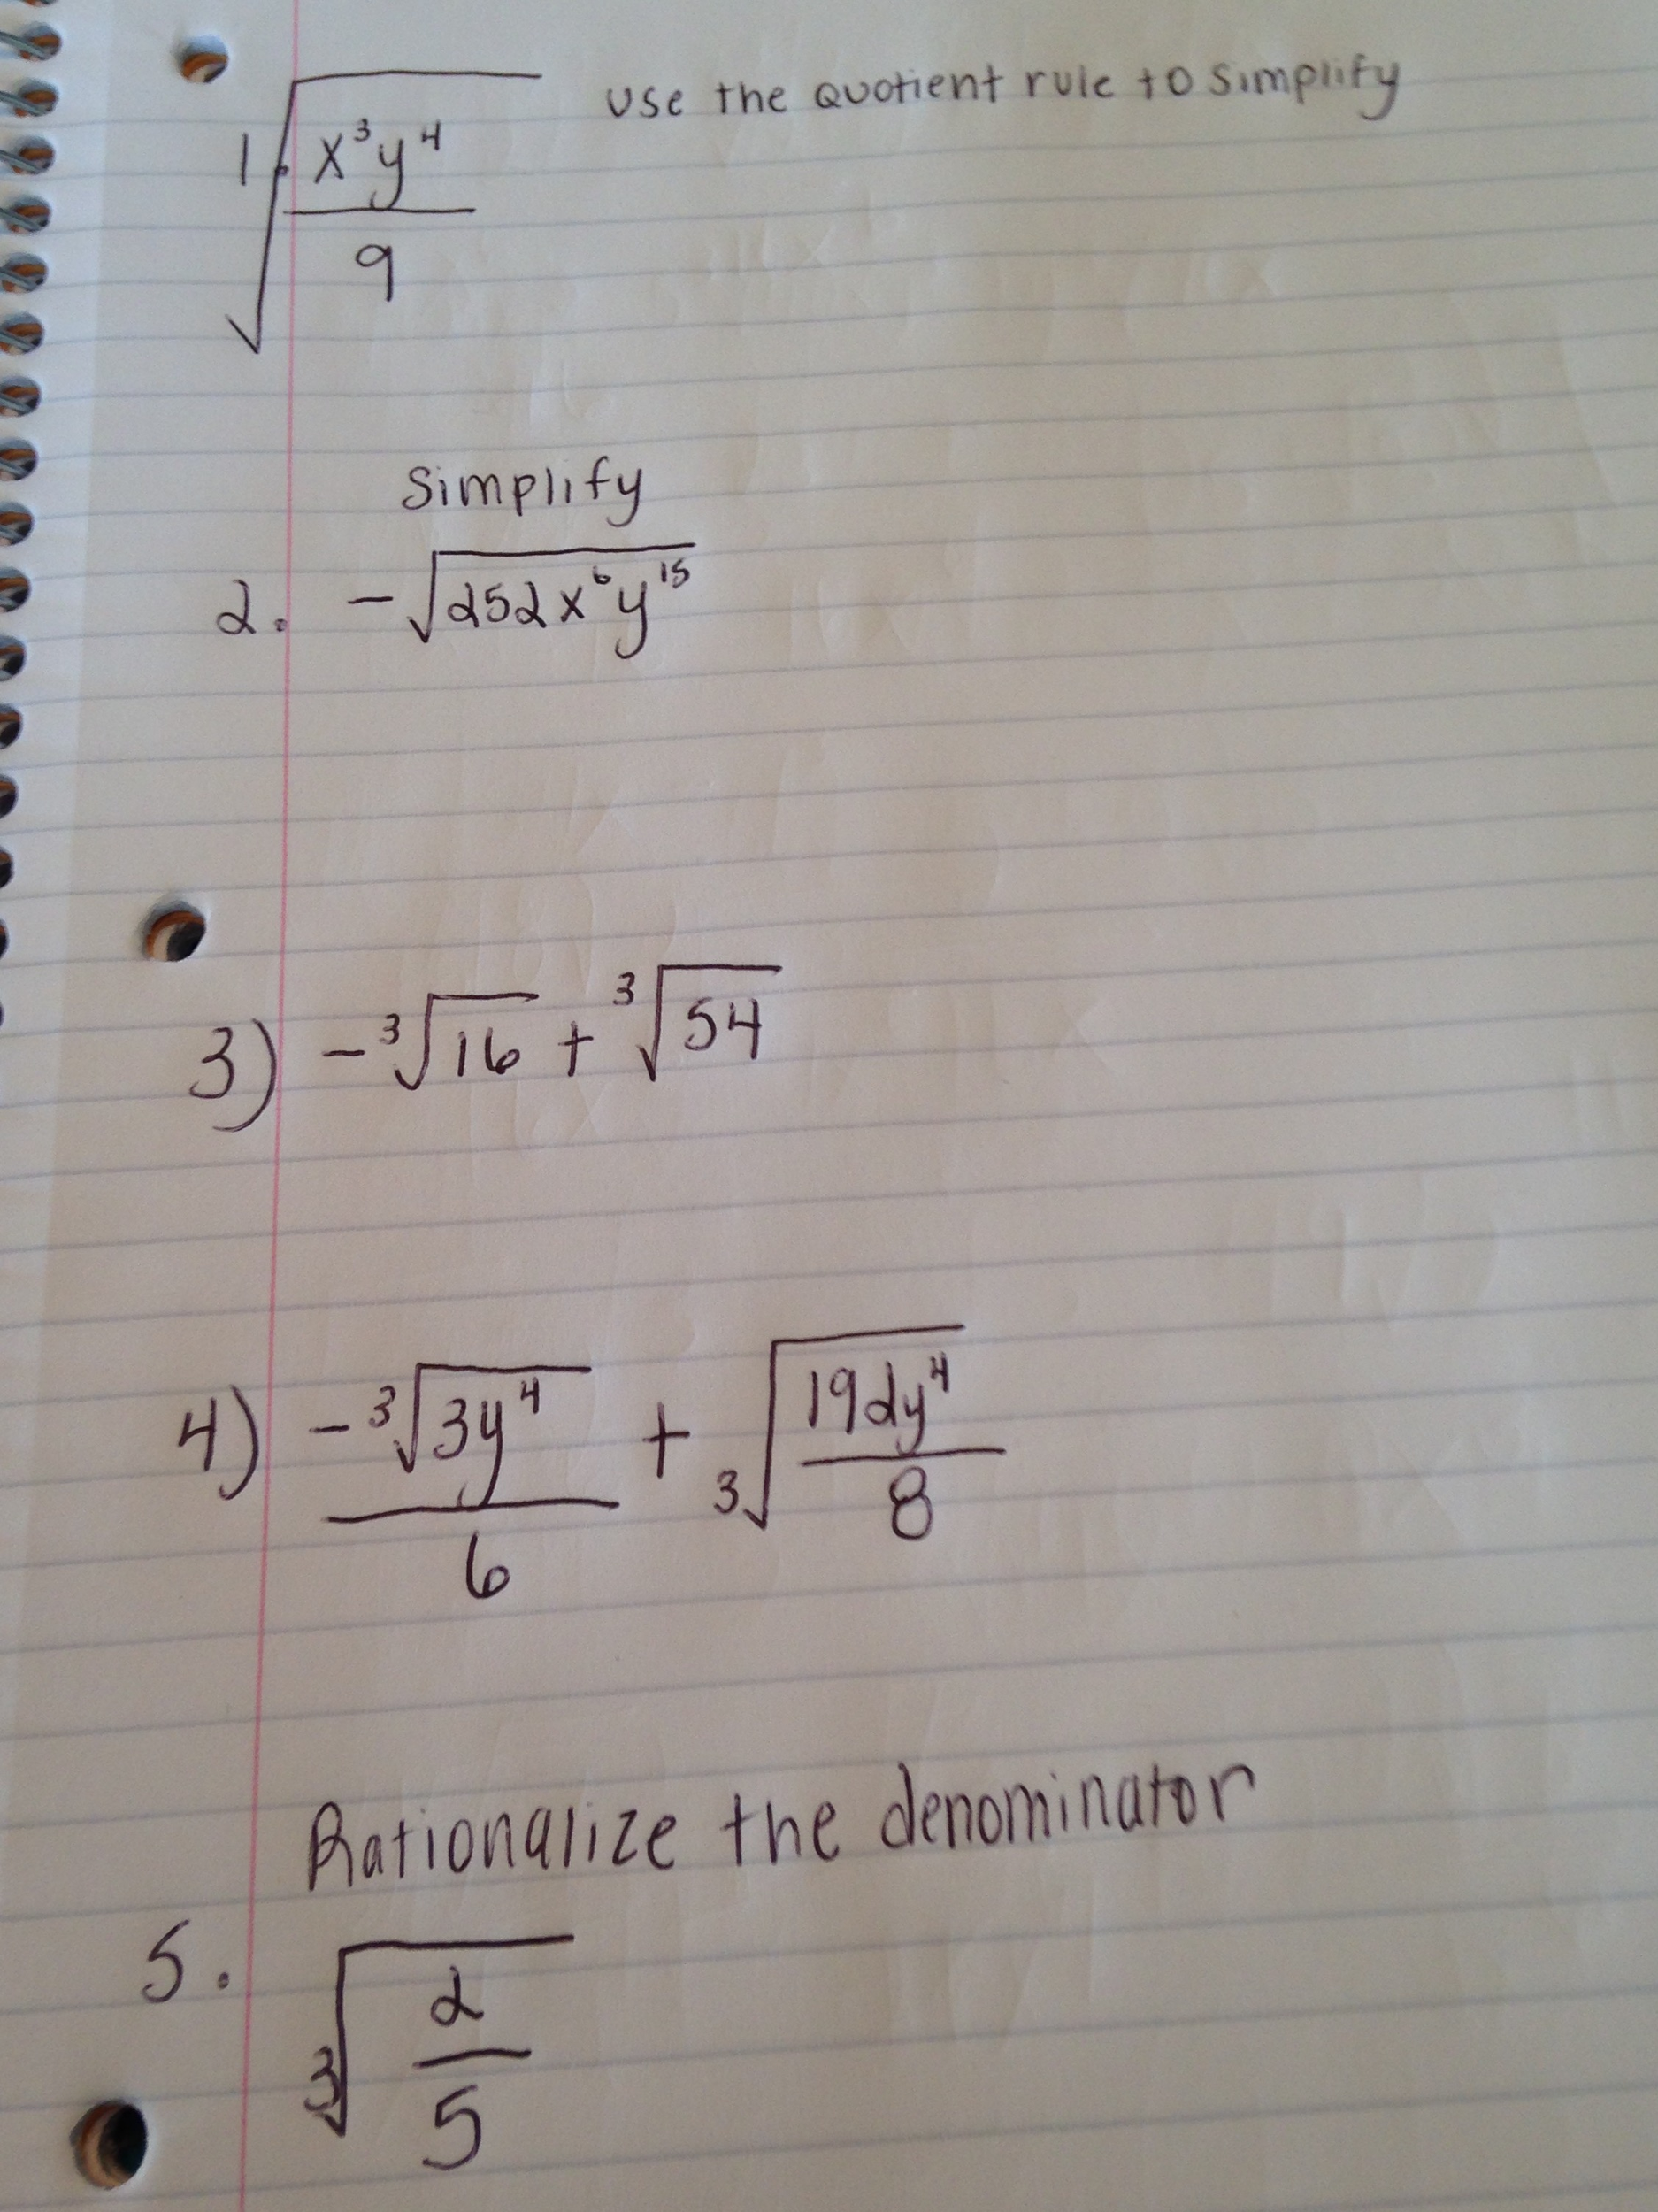 1. √(x³y⁴/9) Use the Quotient rule to Simplify
Simplify
2. -√(252x⁶y¹⁵)
3) -³√16 + ³√54
4) -³√(3y⁴)/6 + ³√(192y⁴/8)
Rationalize the denominator
5. ³√(2/5)